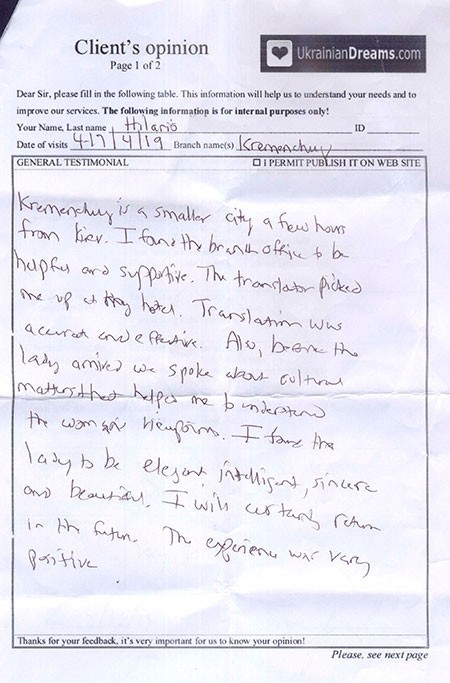 Client's opinion
Page 1 of 2
UkrainianDreams.com
Dear Sir, please fill in the following table. This information will help us to understand your needs and to
improve our services. The following information is for internal purposes only!
Your Name, Last name Hilario ID
Date of visits 4-17/4/19 Branch name(s) Kremenchug
GENERAL TESTIMONIAL ☐ I PERMIT PUBLISH IT ON WEB SITE
Kremenchug is a smaller city a few hours
from Kiev. I found the branch office to be
helpful and supportive. The translator picked
me up at my hotel. Translation was
accurate and effective. Also, before the
lady arrived we spoke about cultural
matters that helped me to understand
the woman's viewpoints. I found the
lady to be elegant, intelligent, sincere
and beautiful. I will certainly return
in the future. The experience was very
positive
Thanks for your feedback, it's very important for us to know your opinion!
Please, see next page